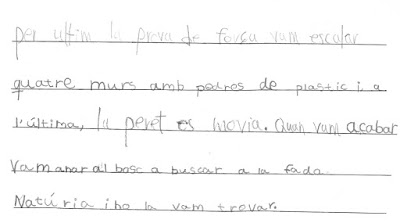 per ultim la prova de força vam escalar
quatre murs amb pedros de plastic i a
l'última, la peret es movia. Quan vam acabar
Vam anar al bosc a buscar a la fada
Natúria i no la vam trovar.